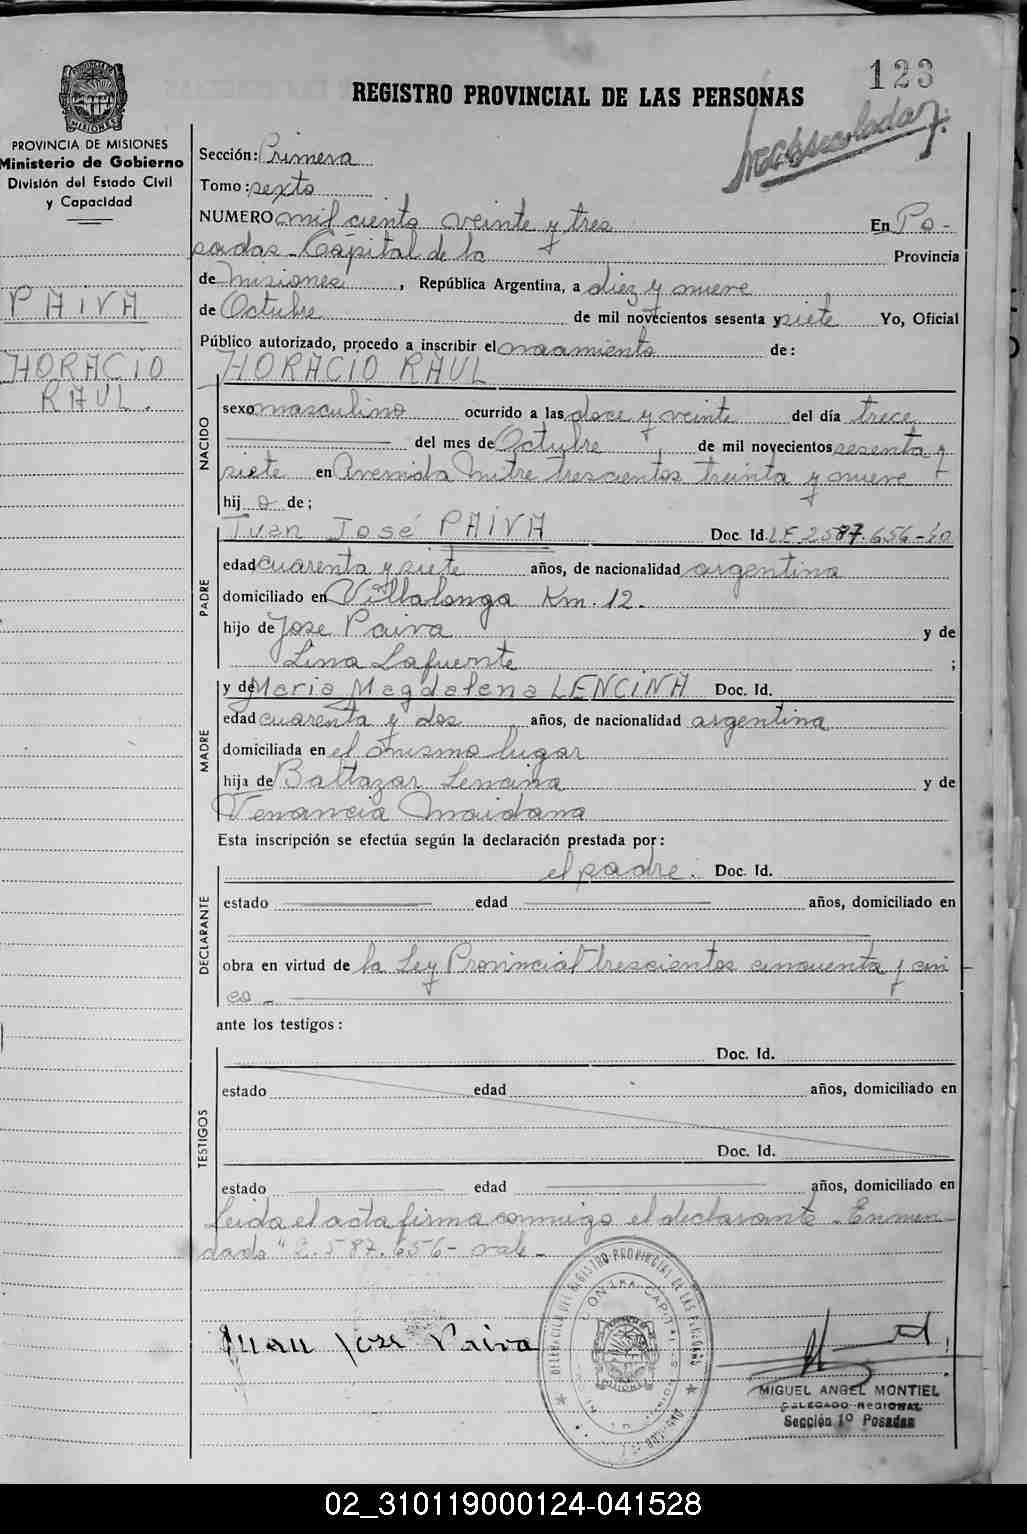 123
REGISTRO PROVINCIAL DE LAS PERSONAS
PROVINCIA DE MISIONES
Ministerio de Gobierno
División del Estado Civil
y Capacidad
PAIVA
HORACIO
RAUL.
Sección: Primera
Tomo: sexto
NUMERO mil ciento veinte y tres En Po-
sadas - Capital de la Provincia
de Misiones, República Argentina, a diez y nueve
de Octubre de mil novecientos sesenta y siete Yo, Oficial
Público autorizado, procedo a inscribir el nacimiento de:
HORACIO RAUL
NACIDO
sexo masculino ocurrido a las doce y veinte del día trece
del mes de Octubre de mil novecientos sesenta y
siete en Avenida Mitre trescientos treinta y nueve
hij o de;
Juan José PAIVA Doc. Id. LE 2587.656-
PADRE
edad cuarenta y siete años, de nacionalidad argentina
domiciliado en Villalonga Km. 12.
hijo de Jose Paiva y de
Lina Lafuente ;
y de Maria Magdalena LENCINA Doc. Id.
MADRE
edad cuarenta y dos años, de nacionalidad argentina
domiciliada en el mismo lugar
hija de Baltazar Lencina y de
Venancia Maidana
Esta inscripción se efectúa según la declaración prestada por:
el padre. Doc. Id.
DECLARANTE
estado edad años, domiciliado en
obra en virtud de la Ley Provincial trescientos cincuenta y cin
co -
ante los testigos:
Doc. Id.
TESTIGOS
estado edad años, domiciliado en
Doc. Id.
estado edad años, domiciliado en
Leida el acta firma conmigo el declarante - Enmen-
dado "2.587.656 - vale -
Juan Jose Paiva
DELEGACION DEL REGISTRO PROVINCIAL DE LAS PERSONAS
MISIONES
MIGUEL ANGEL MONTIEL
DELEGADO REGIONAL
Sección 1º Posadas
02_310119000124-041528